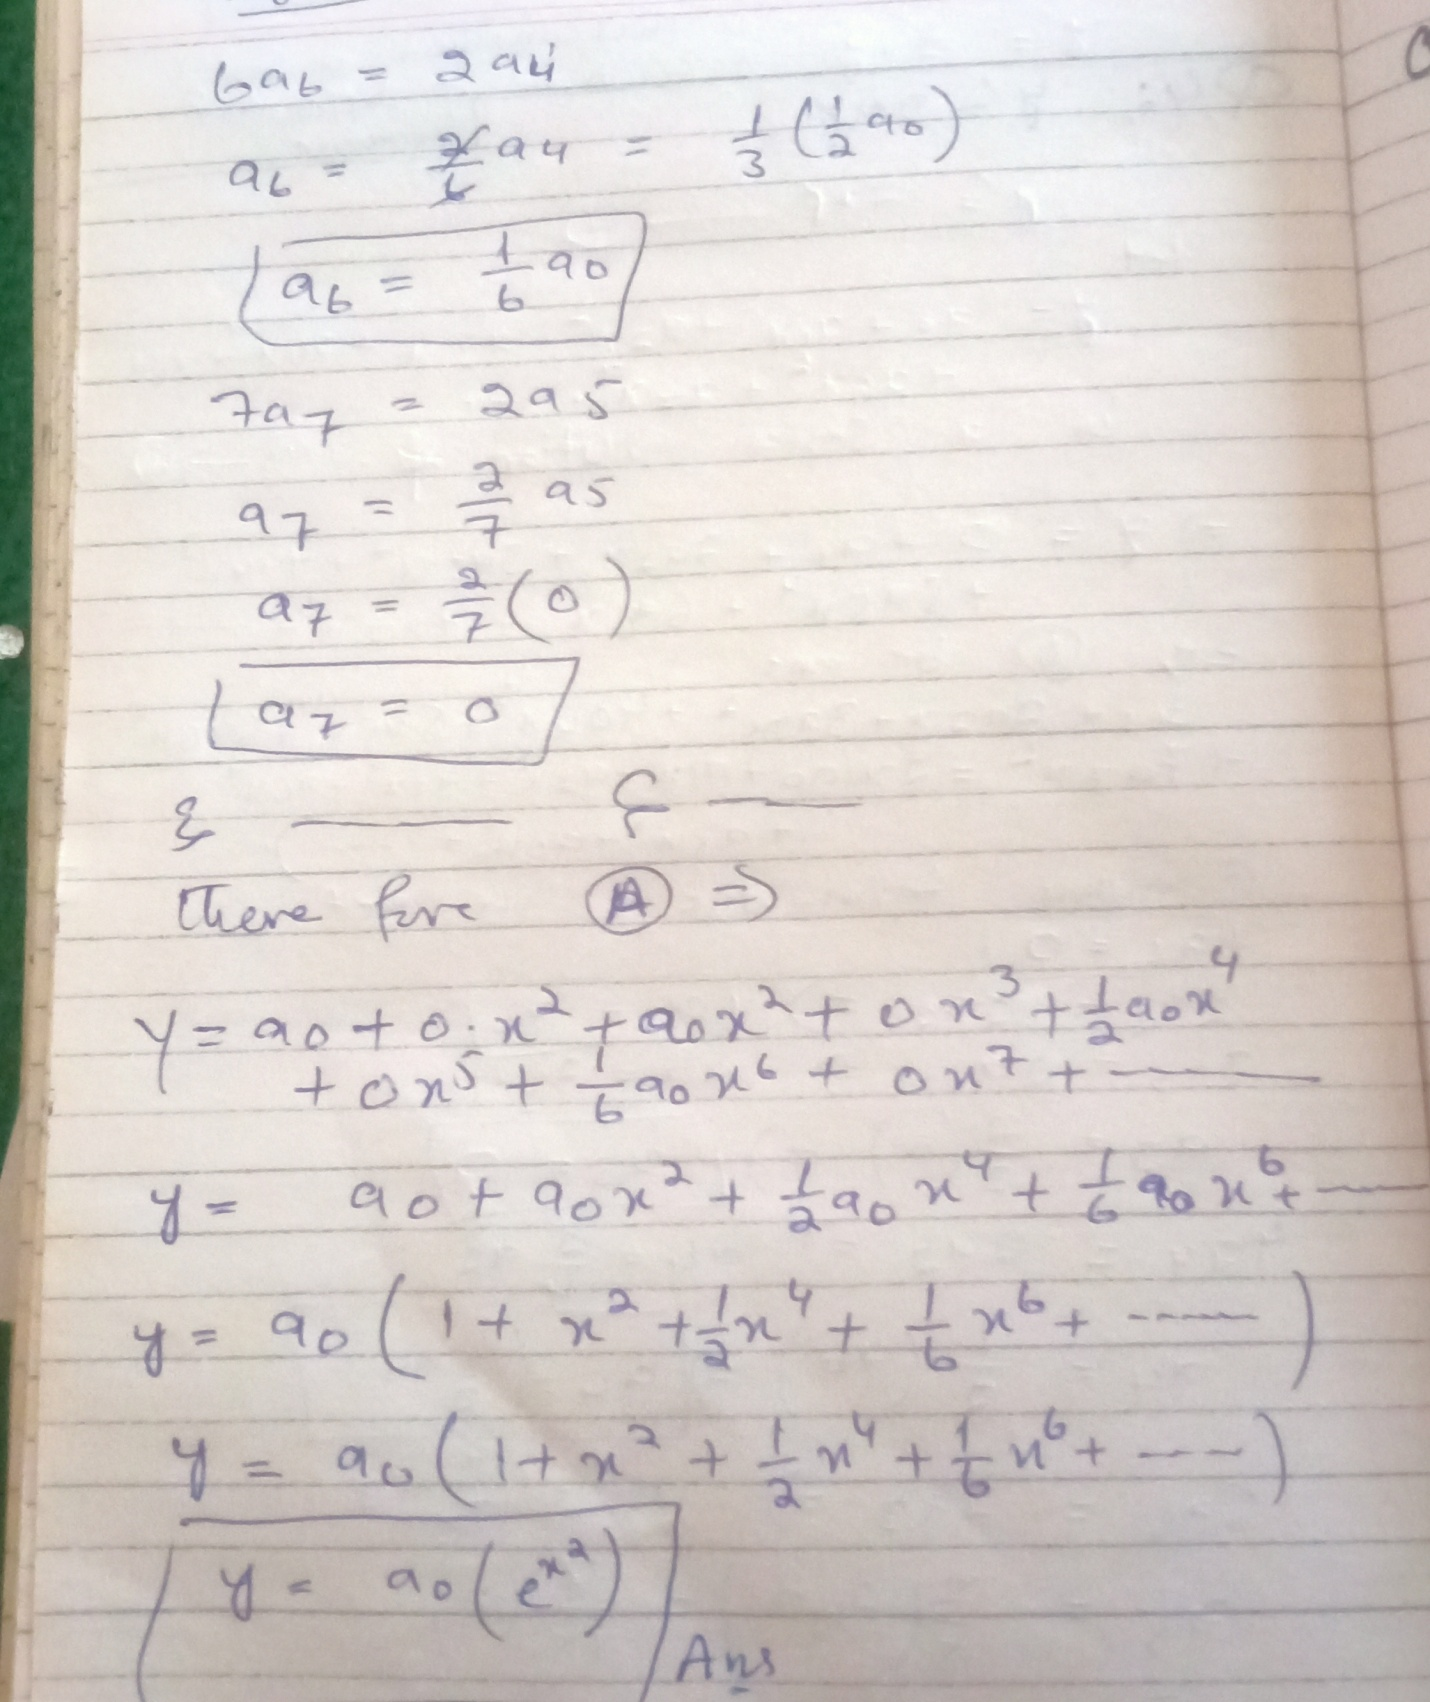 6a6 = 2a4
a6 = 2/6 a4 = 1/3 (1/2 a0)
a6 = 1/6 a0
7a7 = 2a5
a7 = 2/7 a5
a7 = 2/7 (0)
a7 = 0
& —— & ——
There fore (A) ⇒
y = a0 + 0·x² + a0x² + 0x³ + 1/2 a0x⁴
+ 0x⁵ + 1/6 a0x⁶ + 0x⁷ + ———
y = a0 + a0x² + 1/2 a0x⁴ + 1/6 a0x⁶ + ——
y = a0 (1 + x² + 1/2 x⁴ + 1/6 x⁶ + -----)
y = a0 (1 + x² + 1/2 x⁴ + 1/6 x⁶ + ----)
y = a0 (e^x²)
Ans